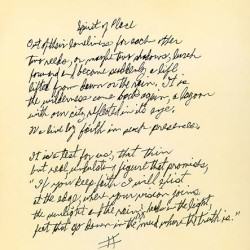 Spirit of Place
Out of their loneliness for each other
two reeds, or maybe two shadows, lurch
forward and become suddenly a life
lifted from dawn or the rain. It is
the wilderness come back again, a lagoon
with our city reflected in its eye.
We live by faith in such presences.
It is a test for us, that thin
but real, undulating figure that promises,
"If you keep faith I will exist
at the edge, where your vision joins
the sunlight and the rain: heads in the light,
feet that go down in the mud where the truth is."